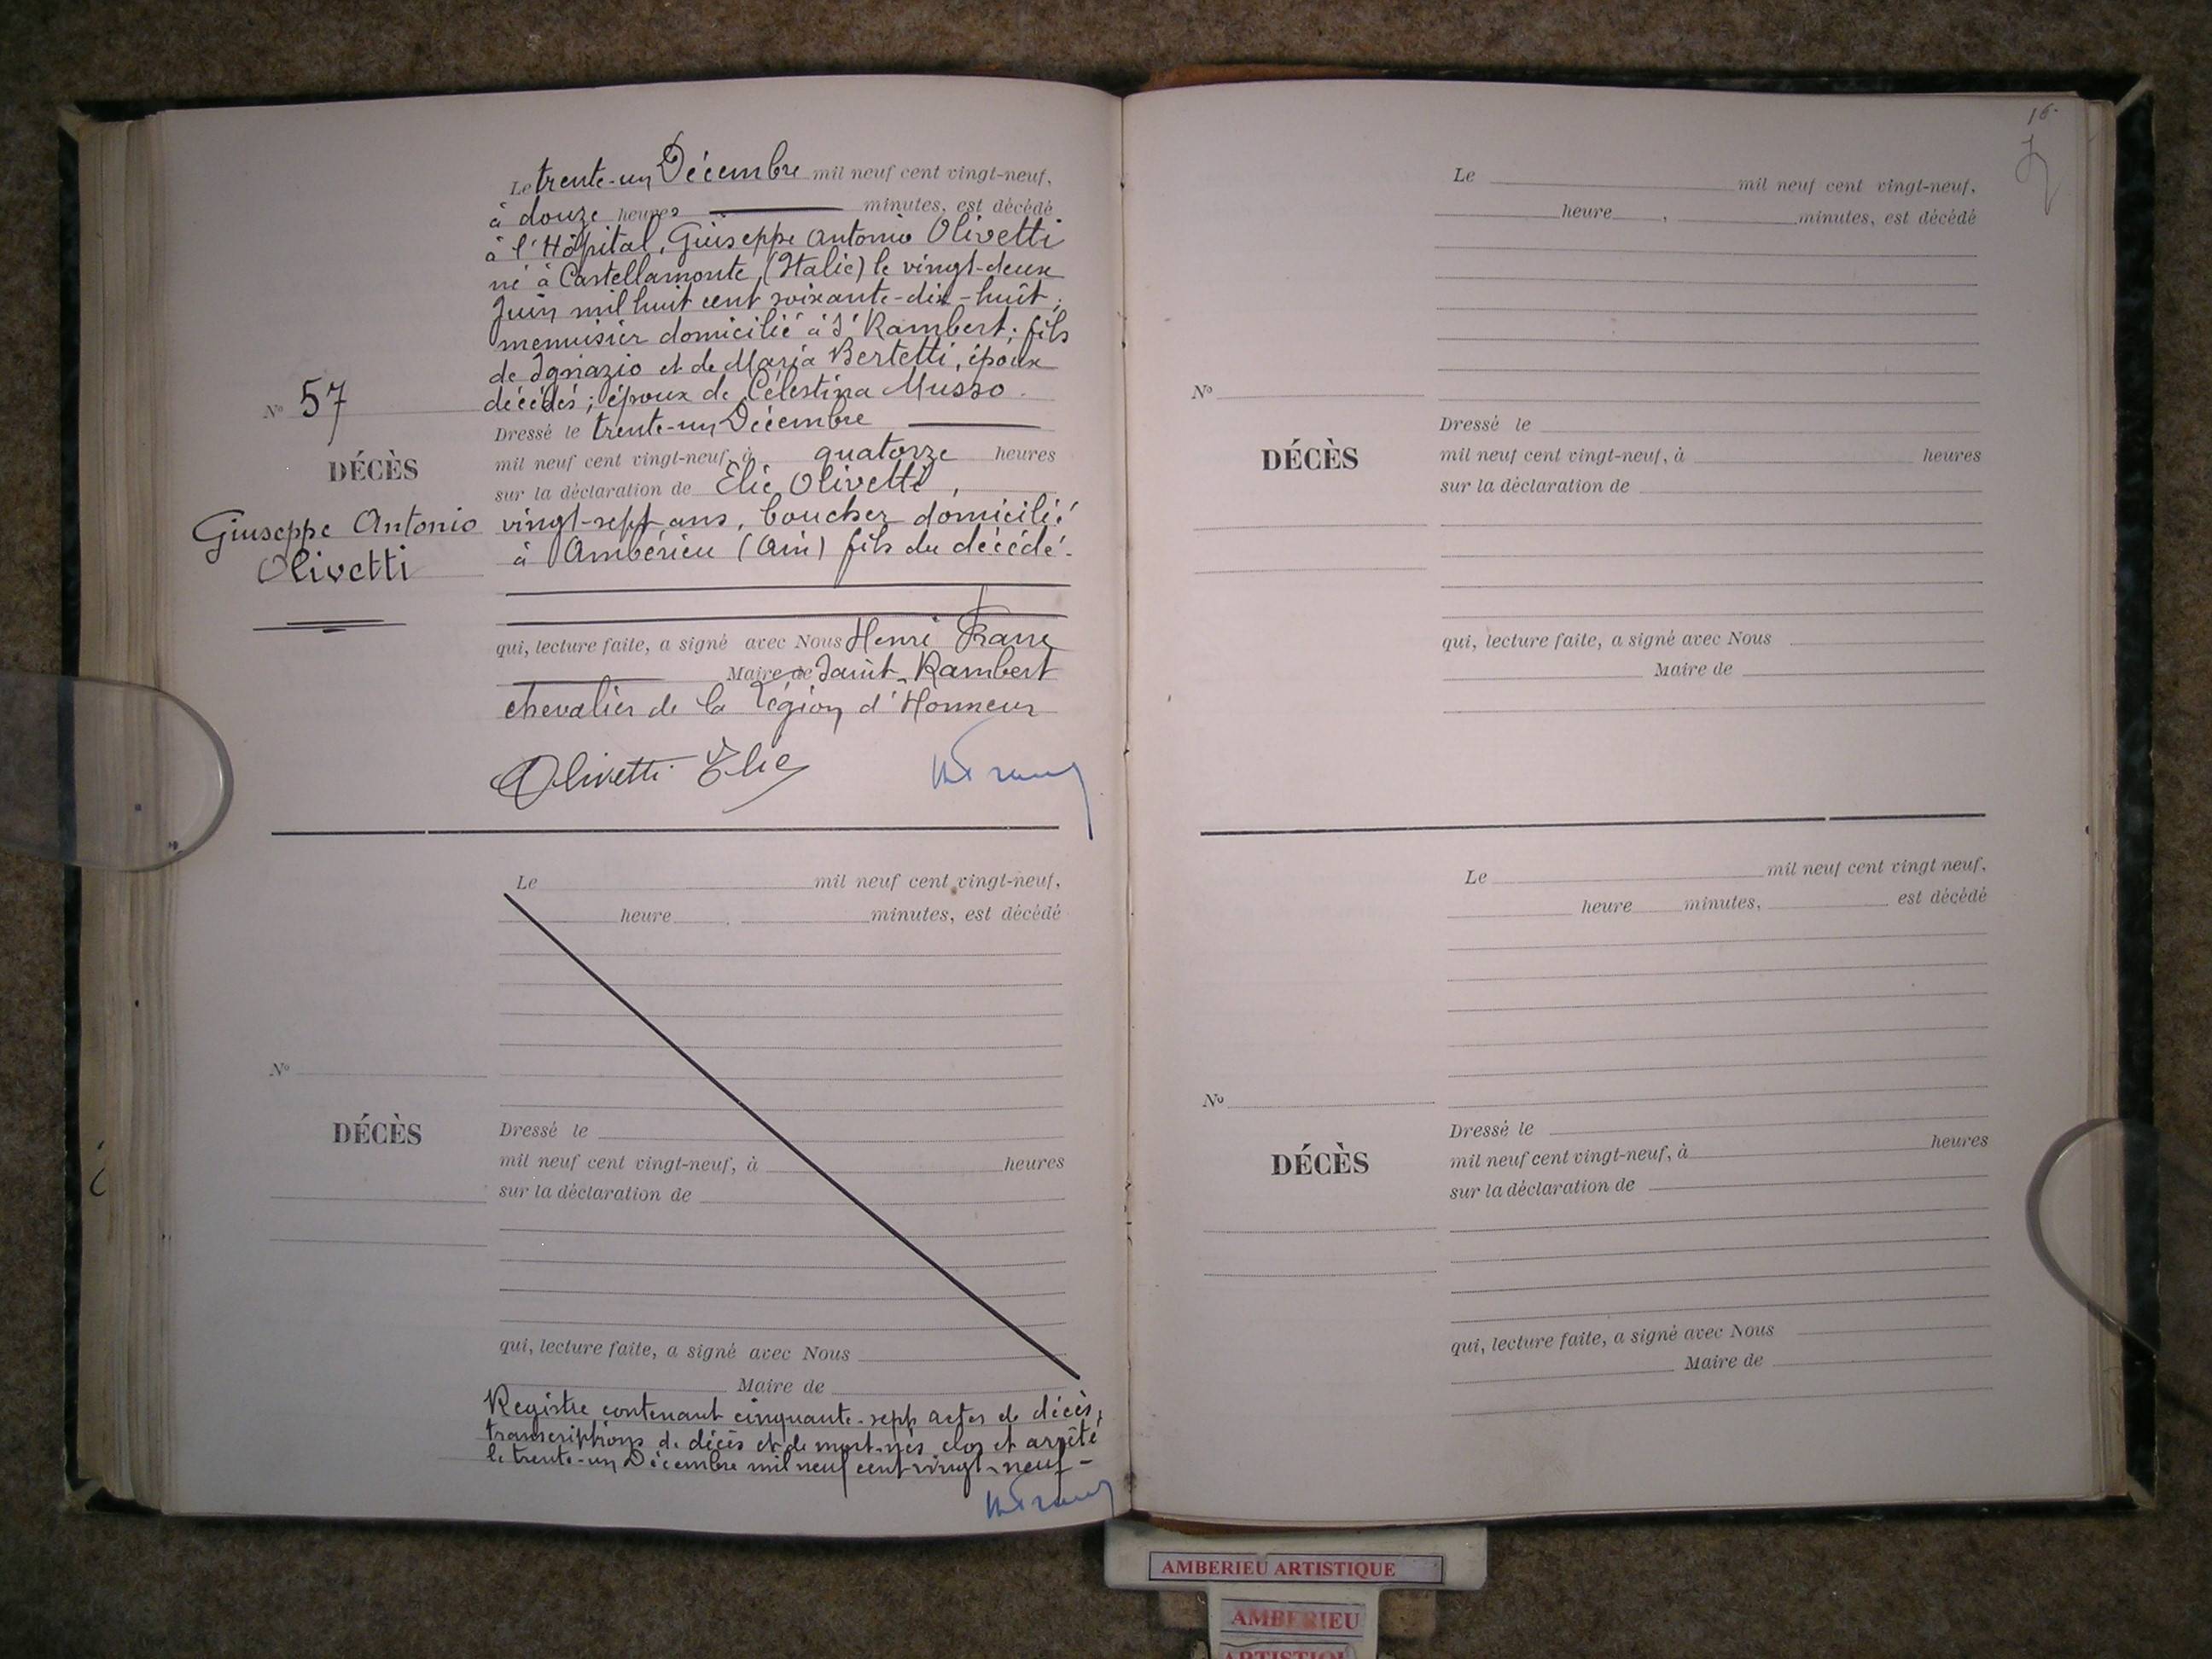 Le trente-un Décembre mil neuf cent vingt-neuf,
à douze heures minutes, est décédé
à l'Hôpital, Giuseppe Antonio Olivetti
né à Castellamonte, (Italie) le vingt-deux
Juin mil huit cent soixante-dix-huit,
menuisier domicilié à St Rambert; fils
de Ignazio et de Maria Bertetti, époux
décédés; époux de Célestina Musso.
Nº 57
DÉCÈS
Giuseppe Antonio
Olivetti
Dressé le trente-un Décembre
mil neuf cent vingt-neuf, à quatorze heures
sur la déclaration de Elie Olivetti,
vingt-sept ans, boucher domicilié
à Ambérieu (Ain) fils du décédé.
qui, lecture faite, a signé avec Nous Henri Franc
Maire de Saint-Rambert
chevalier de la Légion d'Honneur
Olivetti Elie
Le mil neuf cent vingt-neuf,
heure , minutes, est décédé
Nº
DÉCÈS
Dressé le
mil neuf cent vingt-neuf, à heures
sur la déclaration de
qui, lecture faite, a signé avec Nous
Maire de
Registre contenant cinquante-sept actes de décès,
transcriptions de décès et de mort-nés clos et arrêté
le trente-un Décembre mil neuf cent vingt-neuf-
16
Le mil neuf cent vingt-neuf,
heure , minutes, est décédé
Nº
DÉCÈS
Dressé le
mil neuf cent vingt-neuf, à heures
sur la déclaration de
qui, lecture faite, a signé avec Nous
Maire de
Le mil neuf cent vingt neuf,
heure minutes, est décédé
Nº
DÉCÈS
Dressé le
mil neuf cent vingt-neuf, à heures
sur la déclaration de
qui, lecture faite, a signé avec Nous
Maire de
AMBERIEU ARTISTIQUE
AMBERIEU